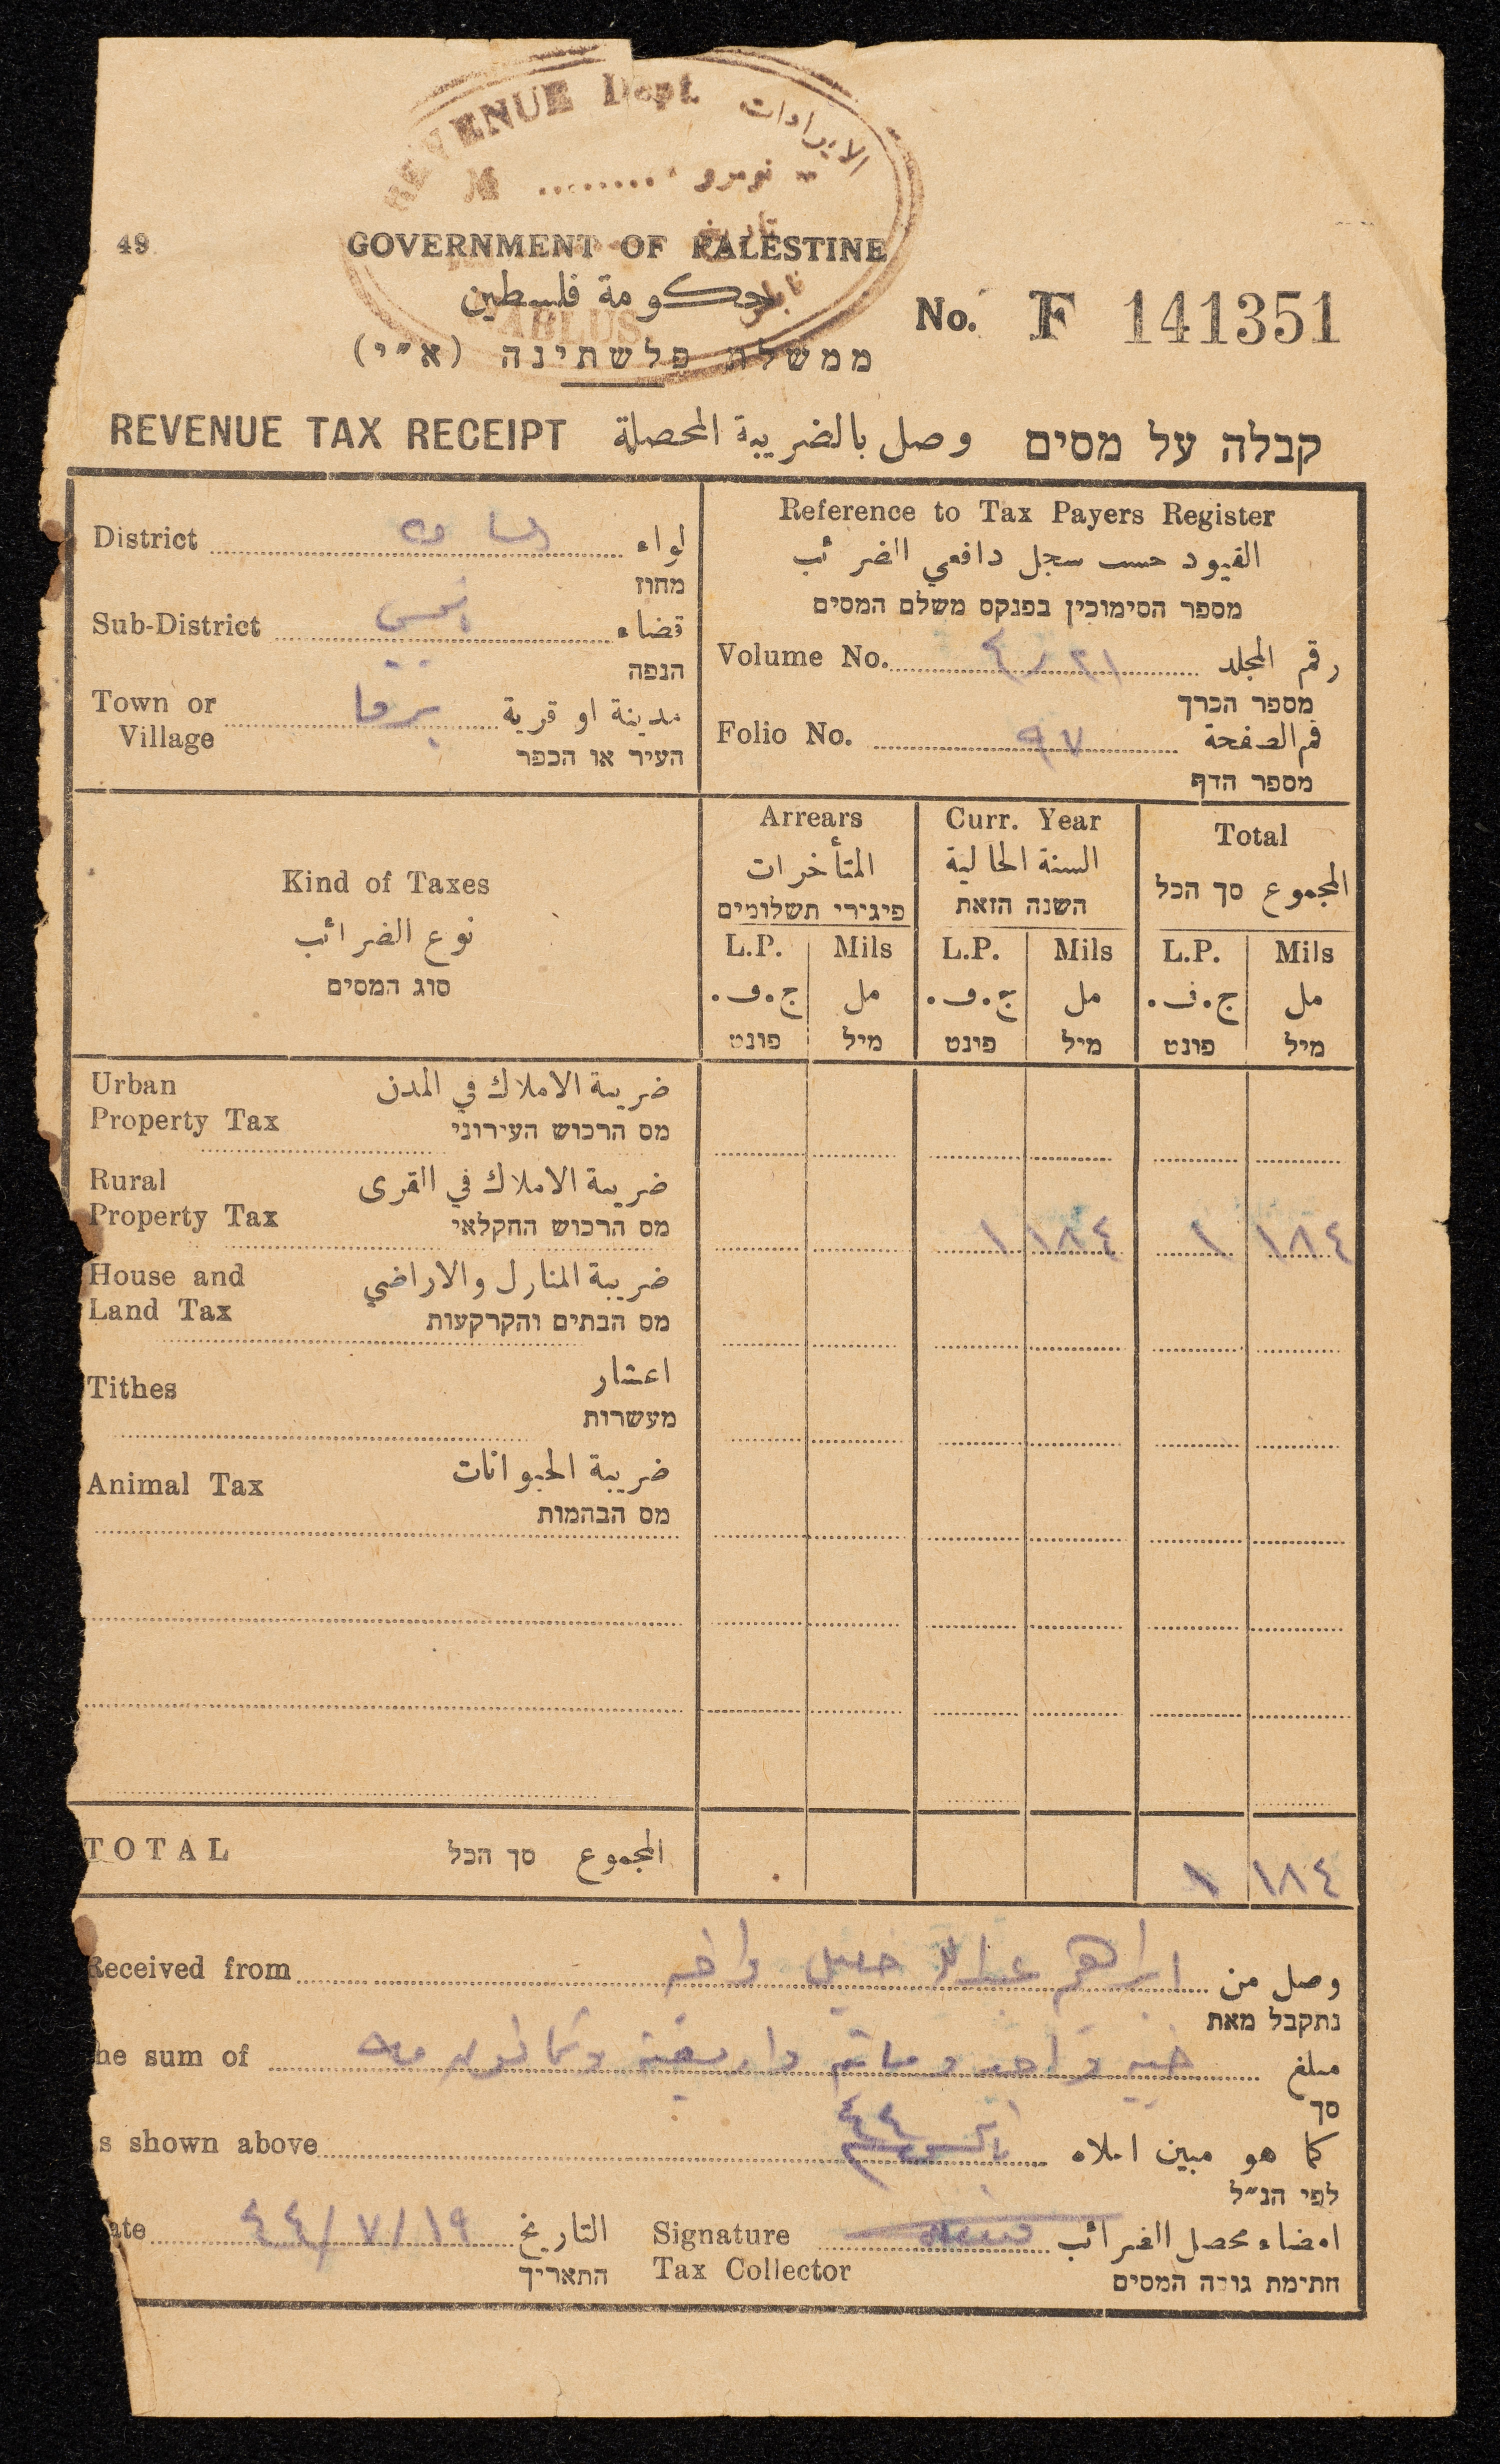 REVENUE Dept. الايرادات
نومرو ........ №
49
GOVERNMENT OF PALESTINE
حكومة فلسطين
ממשלת פלשתינה (א״י)
NABLUS
No. F 141351
REVENUE TAX RECEIPT وصل بالضريبة المحصلة קבלה על מסים
District لواء
מחוז
Sub-District قضاء
הנפה
Town or Village برقا مدينة او قرية
העיר או הכפר
Reference to Tax Payers Register
القيود حسب سجل دافعي الضرائب
מספר הסימוכין בפנקס משלם המסים
Volume No. ٤/٢١ رقم المجلد
מספר הכרך
Folio No. ٩٧ قم الصفحة
מספר הדף
Kind of Taxes
نوع الضرائب
סוג המסים
Arrears
المتأخرات
פיגירי תשלומים
Curr. Year
السنة الحالية
השנה הזאת
Total
المجموع סך הכל
L.P. Mils L.P. Mils L.P. Mils
ج.ف. مل ج.ف. مل ج.ف. مل
פונט מיל פונט מיל פונט מיל
Urban Property Tax ضريبة الاملاك في المدن
מס הרכוש העירוני
Rural Property Tax ضريبة الاملاك في القرى
מס הרכוש החקלאי
١ ١٨٤ ١ ١٨٤
House and Land Tax ضريبة المنازل والاراضي
מס הבתים והקרקעות
Tithes اعشار
מעשרות
Animal Tax ضريبة الحيوانات
מס הבהמות
TOTAL المجموع סך הכל
١ ١٨٤
Received from ابراهيم عبدالله خليل واخيه وصل من
נתקבל מאת
he sum of جنيه واحد ومائة واربعة وثمانون مل مبلغ
סך
s shown above ٤٤ كما هو مبين اعلاه
לפי הנ״ל
ate ٤٤/٧/١٩ التاريخ
התאריך
Signature Tax Collector امضاء محصل الضرائب
חתימת גובה המסים